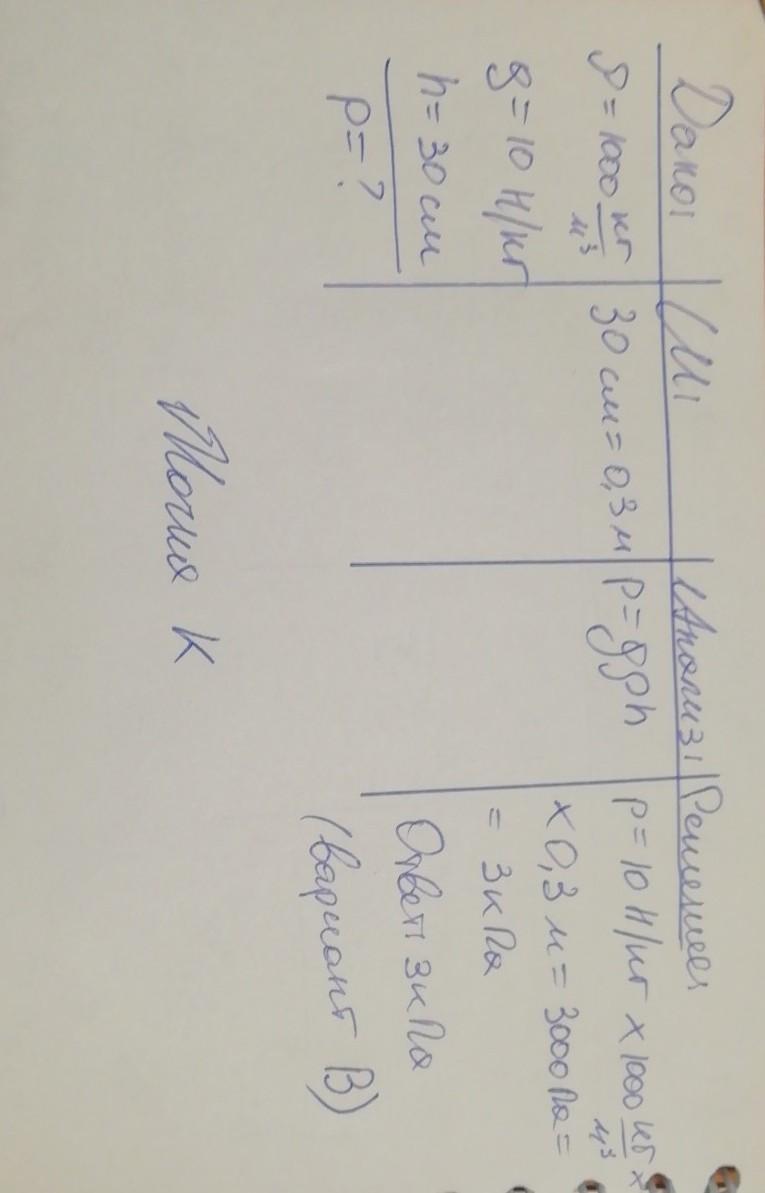 Дано:
ρ = 1000 кг/м³
g = 10 Н/кг
h = 30 см
p = ?
СИ:
30 см = 0,3 м
Анализ:
p = gρh
Решение:
p = 10 Н/кг × 1000 кг/м³ ×
× 0,3 м = 3000 Па =
= 3 кПа
Ответ: 3 кПа
(вариант В)
Точка К